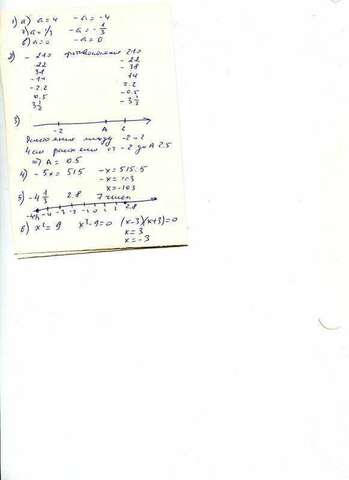 1) а) a = 4   - a = - 4
б) a = 1/3   - a = - 1/3
в) a = 0   - a = 0
2) - 210   210
22   - 22
38   - 38
- 14   14
- 2.2   2.2
0.5   - 0.5
3 1/2   - 3 1/2
3)
-2   A   2
Расстояние между -2 и 2
4 см расстояние от -2 до A 2.5
A = 0.5
4) - 5x = 515   - x = 515:5
- x = 103
x = -103
5) - 4 1/3   2.8   7 чисел
-4 -3 -2 -1 0 1 2 2.8
6) x² = 9   x² - 9 = 0   (x-3)(x+3) = 0
x = 3
x = -3